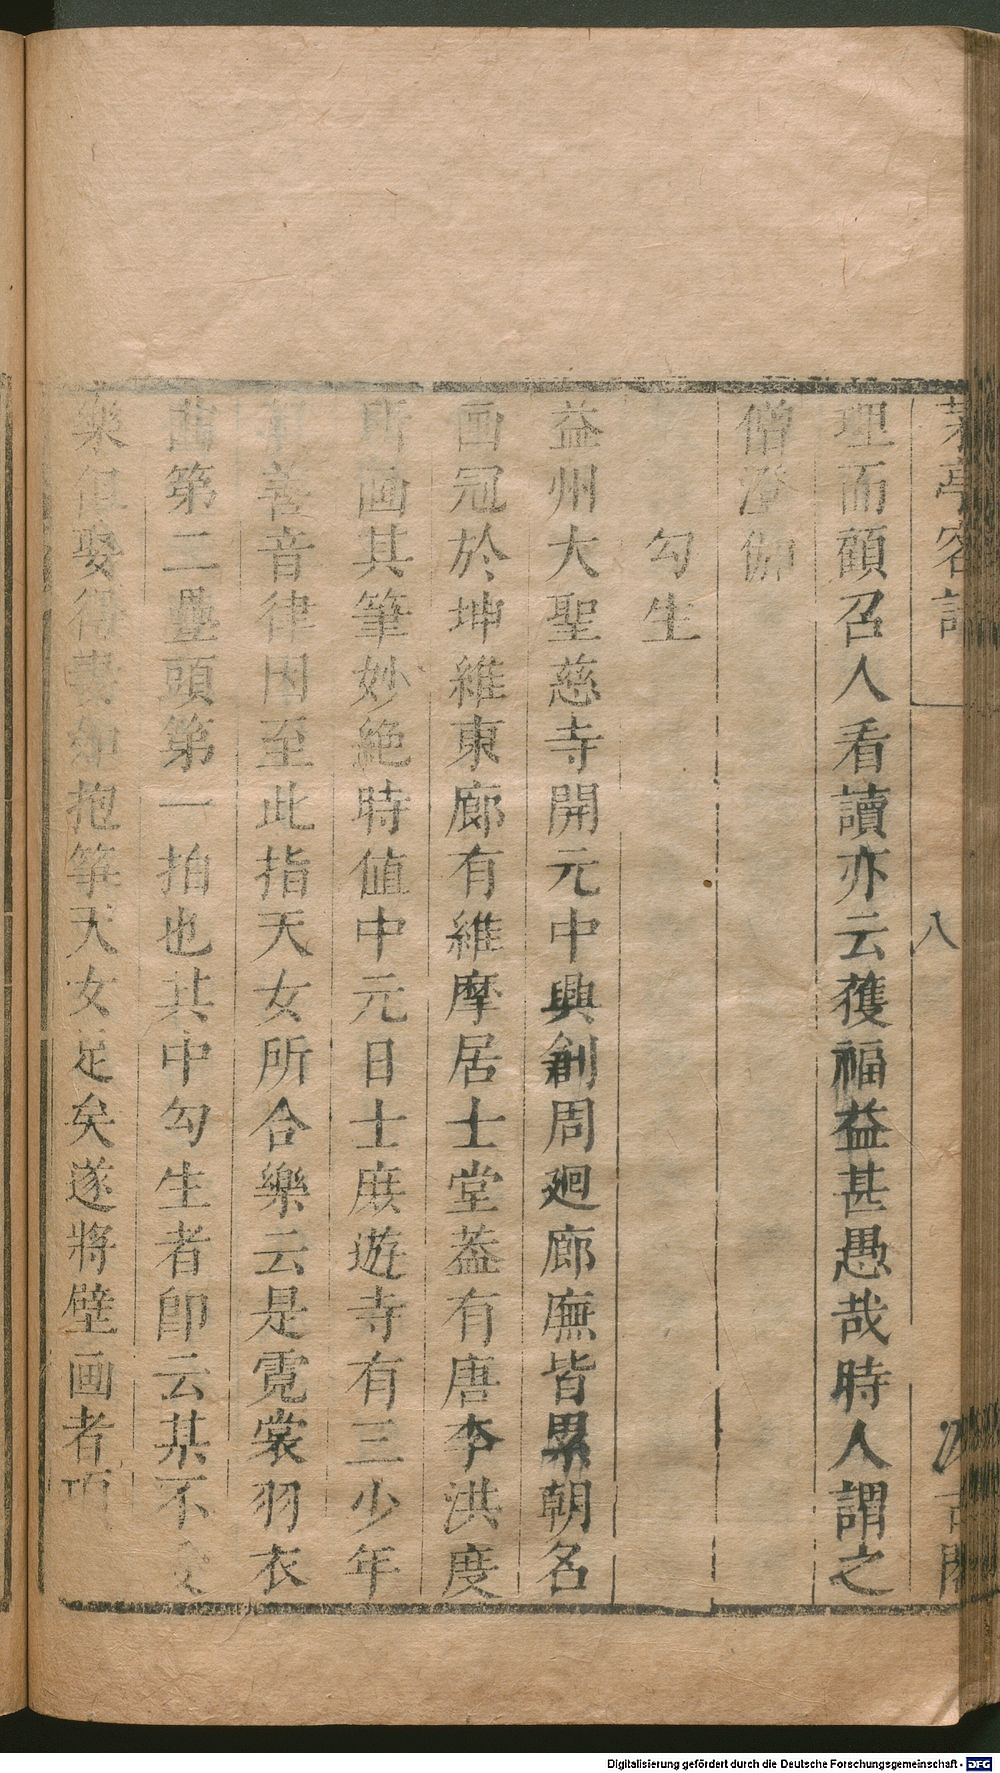 茅亭客話
八
理而顧召人看讀亦云獲福益甚愚哉時人謂之
僧澄伽
勾生
益州大聖慈寺開元中興創周廻廊廡皆累朝名
画冠於坤維東廊有維摩居士堂葢有唐李洪度
所画其筆妙絶時值中元日士庶遊寺有三少年
善音律因至此指天女所合樂云是霓裳羽衣
曲第二疊頭第一拍也其中勾生者卽云某不
樂但娶得妻如抱箏天女足矣遂將壁画者項
Digitalisierung gefördert durch die Deutsche Forschungsgemeinschaft - DFG